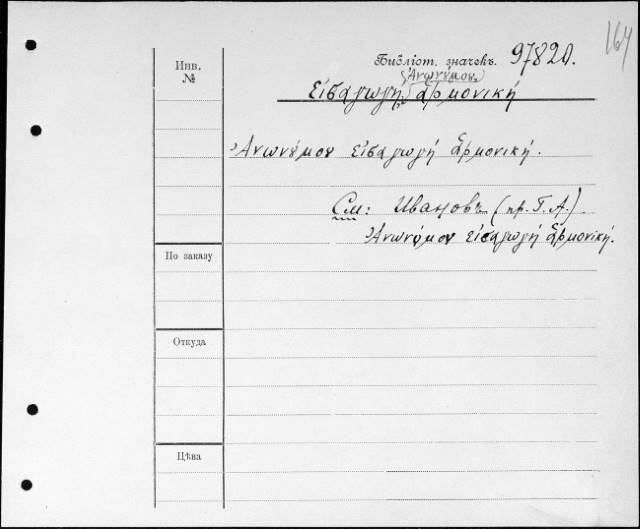 164
Библіот. значекъ. 97820.
Инв. №
(Ἀνωνύμου)
Εἰσαγωγὴ ἁρμονική
Ἀνωνύμου εἰσαγωγή ἁρμονική.
См: Ивановъ (пр. Г. А.)
Ἀνωνύμου εἰσαγωγή ἁρμονική.
По заказу
Откуда
Цѣна